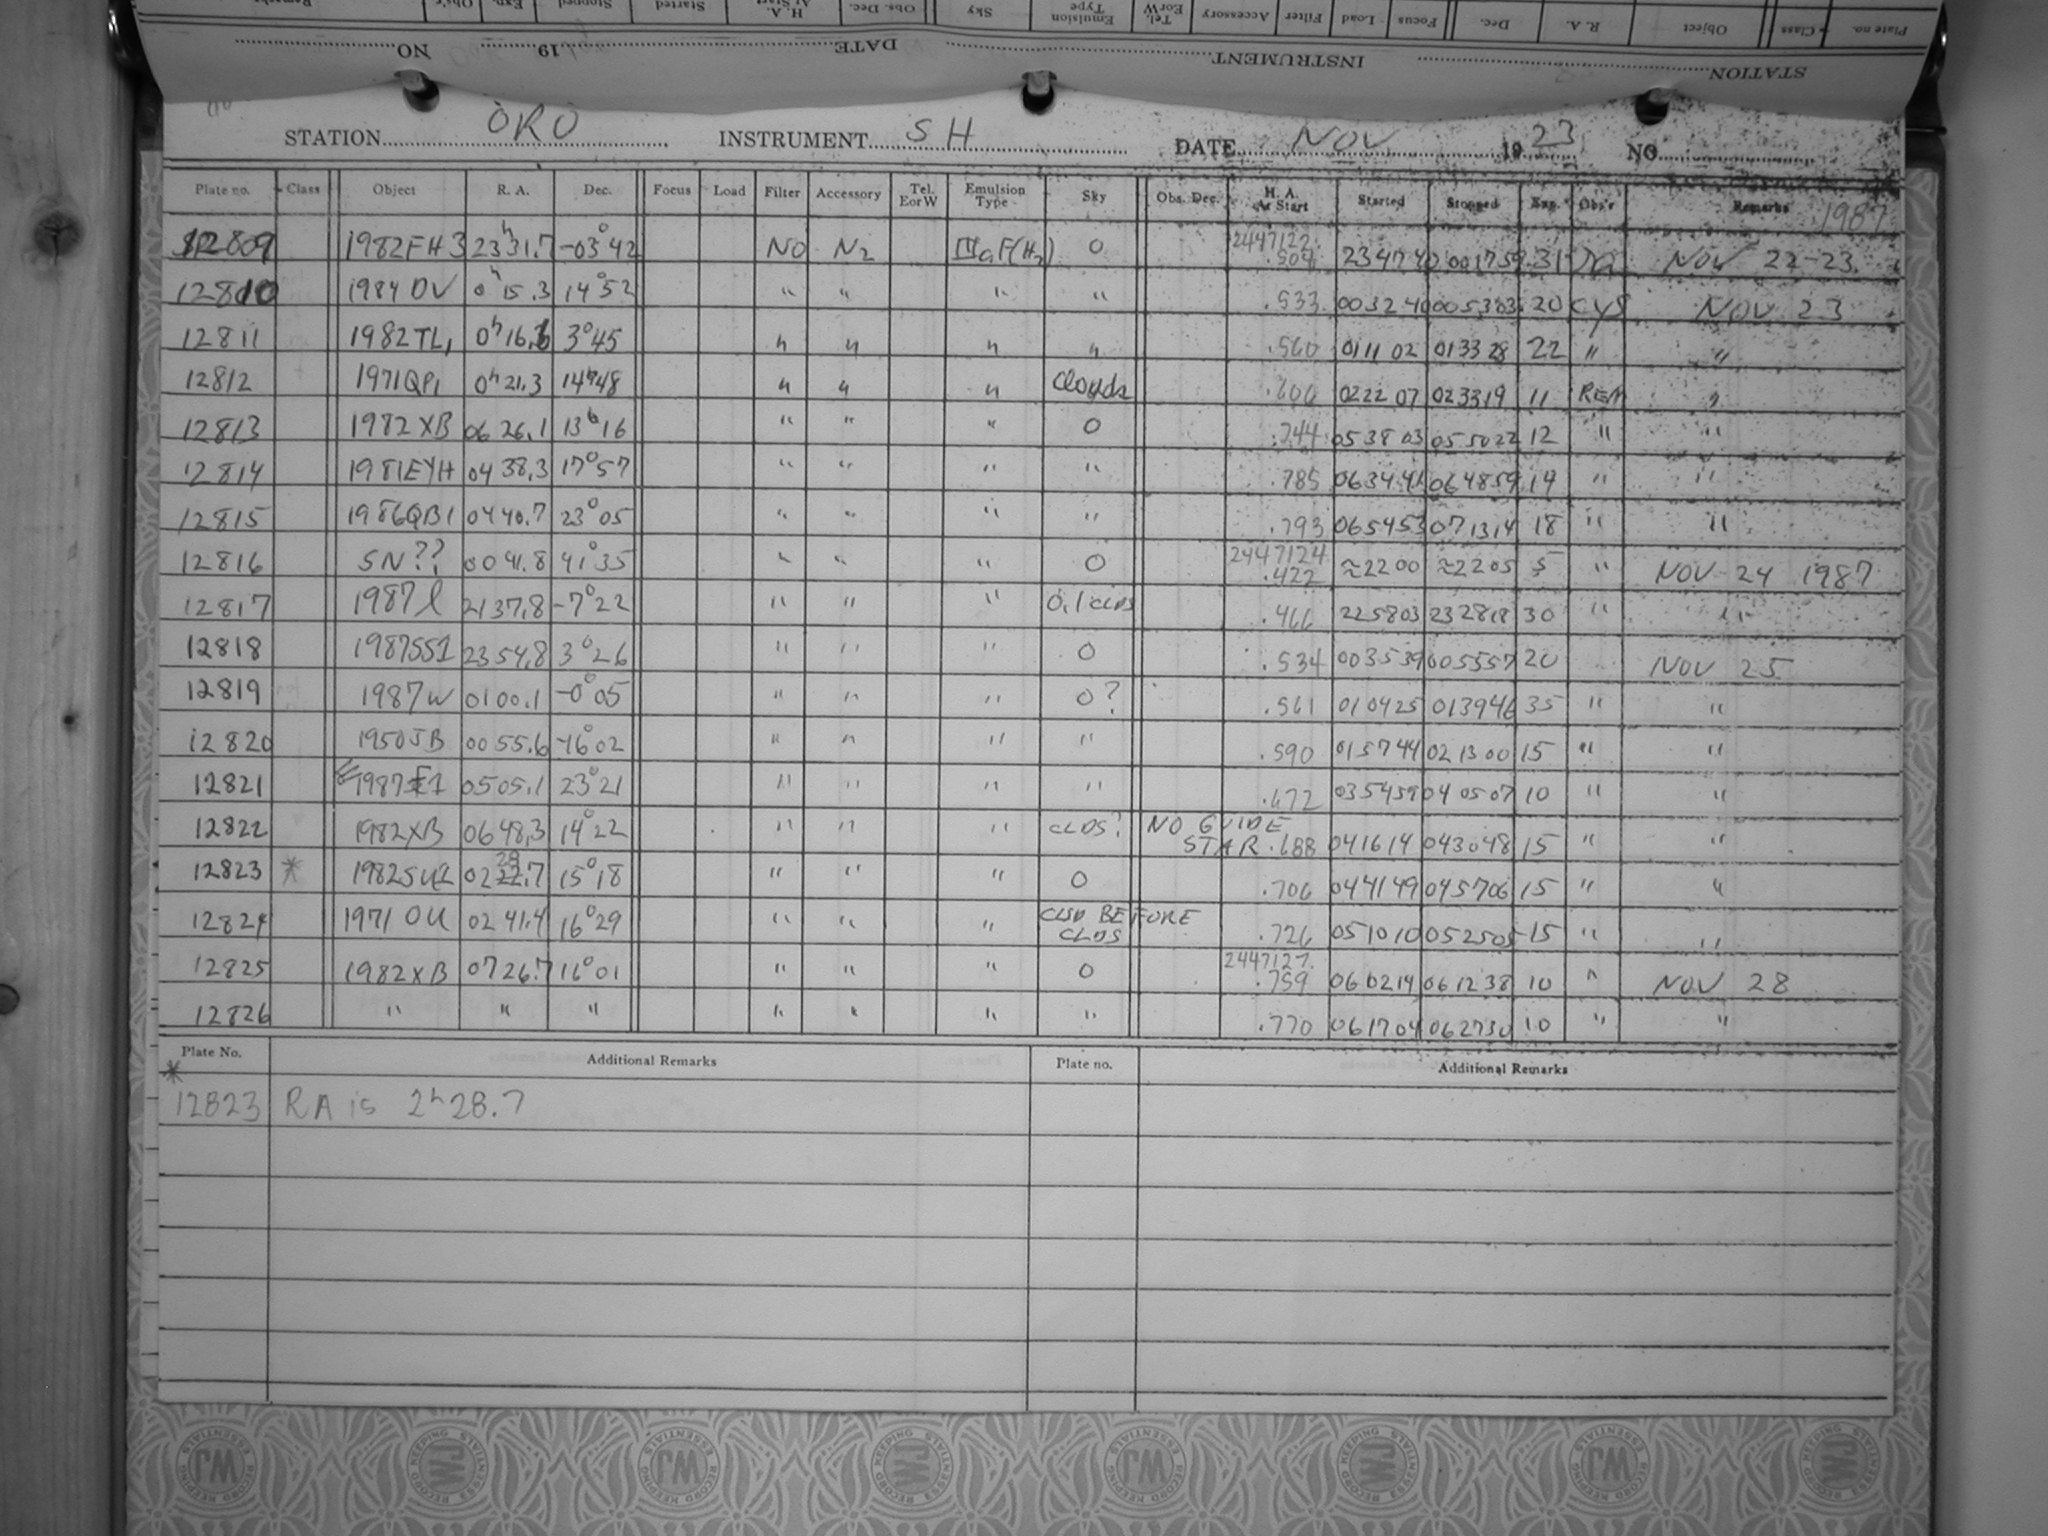 Plate no. Class Object R. A. Dec. Focus Load Filter Accessory Tel. EorW Emulsion Type Sky Obs. Dec. H. A. At Start Started Stopped Exp. Obs'r Remarks
STATION INSTRUMENT DATE 19 NO
STATION ORO INSTRUMENT SH DATE NOV 19 23 NO
Plate no. Class Object R. A. Dec. Focus Load Filter Accessory Tel. EorW Emulsion Type Sky Obs. Dec. H. A. At Start Started Stopped Exp. Obs'r Remarks 1987
12809 1982FH3 23h31.7 -03°42 NO N2 IIIaF(H2) 0 2447122. .504 NOV 22-23
12810 1984 DV 0h15.3 14°52 " " " " .533 003240 005303 20 CYS NOV 23
12811 1982TL1 0h16.6 3°45 " " " " .560 011102 013328 22 " "
12812 1971QP1 0h21.3 14°48 " " " Clouds .600 022207 023319 11 REM "
12813 1982 XB 06 26.1 13°16 " " " 0 .744 053803 055022 12 " "
12814 1981EYH 04 38.3 17°57 " " " " .785 063441 064859 14 " "
12815 1986QB1 0440.7 23°05 " " " " .793 065453 071314 18 " "
12816 SN?? 0041.8 41°35 " " " 0 2447124 .422 ≈2200 ≈2205 5 " NOV 24 1987
12817 1987l 2137.8 -7°22 " " " 0.1 CLDS .466 225803 232818 30 " "
12818 1987SS1 2354.8 3°26 " " " 0 .534 003539 005557 20 NOV 25
12819 1987W 0100.1 -0°05 " " " 0? .561 010425 013946 35 " "
12820 1950JB 0055.6 -16°02 " " " " .590 015744 021300 15 " "
12821 0505.1 23°21 " " " " .672 035459 040507 10 " "
12822 1982XB 0648.3 14°22 " " " CLDS? NO GUIDE STAR .688 041614 043048 15 " "
12823 * 1982SU2 02 28 22.7 15°18 " " " 0 .706 044149 045706 15 " "
12824 1971 OU 02 41.4 16°29 " " " CLSD BEFORE CLDS .726 051010 052505 15 " "
12825 1982XB 0726.7 16°01 " " " 0 2447127. .759 060214 061238 10 " NOV 28
12826 " " " " " " " .770 061704 062730 10 " "
Plate No. Additional Remarks Plate no. Additional Remarks
*
12823 RA is 2h28.7
WJ ESSENTIALS RECORD KEEPING